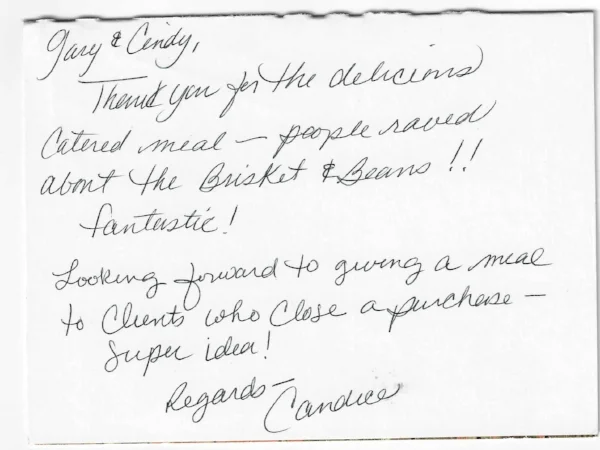 Gary & Cindy,
Thank you for the delicious
Catered meal — people raved
about the Brisket & Beans!!
fantastic!
Looking forward to giving a meal
to Clients who Close a purchase —
Super idea!
Regards —
Candice